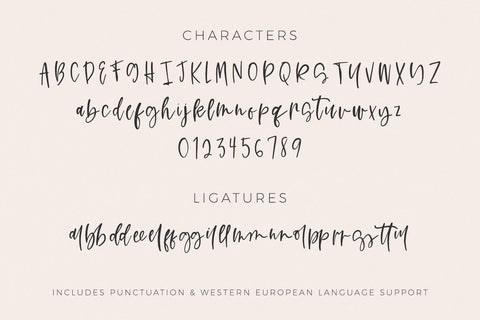 CHARACTERS
ABCDEFGHIJKLMNOPQRSTUVWXYZ
abcdefghijklmnopqrstuvwxyz
0123456789
LIGATURES
INCLUDES PUNCTUATION & WESTERN EUROPEAN LANGUAGE SUPPORT